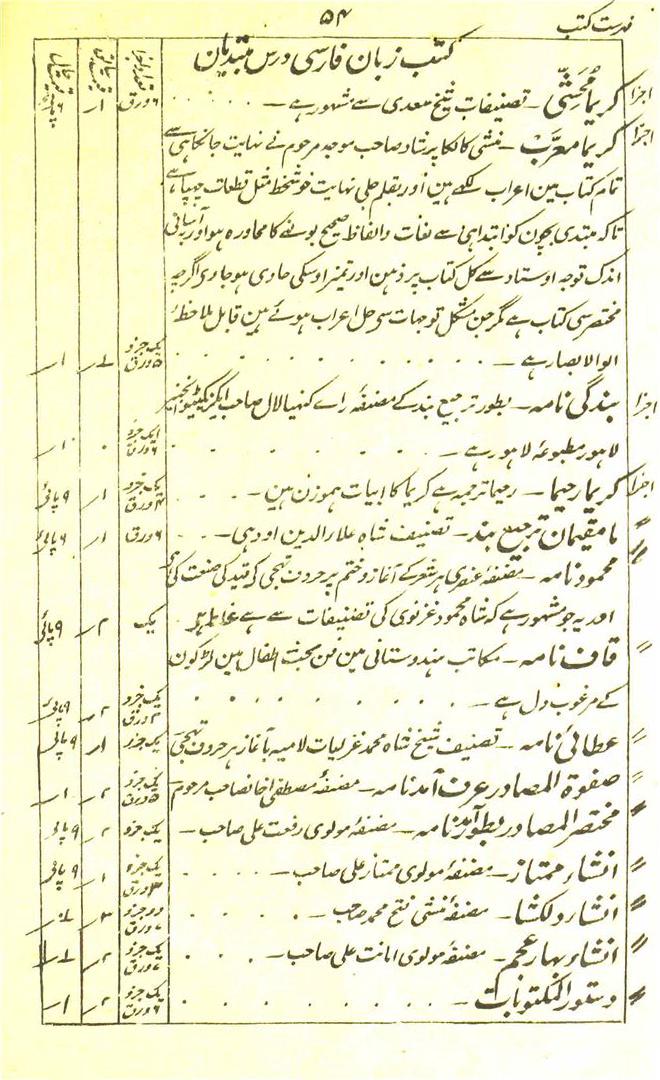 فهرست کتب
۵۴
کتب زبان فارسی درس مبتدیان
اجزا کریما محشّی — تصنیفات شیخ سعدی سے مشہور ہے ۶ورق ۱ر
اجزا کریما معرّب — منشی کالکا پرشاد صاحب موجد مرحوم نے نہایت جانکاہی سے
تمام کتاب مین اعراب لکھے ہین اور بقلم جلی نہایت خوشخط مثل قطعات چھپا ہے
تاکہ مبتدی بچون کو ابتدا ہی سے لغات و الفاظ صحیح بولنے کا محاورہ ہو اور بآسانی
اندک توجہ اوستاد سے کل کتاب پر ذہن اور تمیز اوسکی حاوی ہو جاوی اگرچہ
مختصر سی کتاب ہے مگر جن مشکل توجہات سی حل اعراب ہوئے ہین قابل ملاحظہٴ
اولوالابصار ہے — یک جزو ۵ورق
اجزا بندگی نامہ — بطور ترجیع بند کے مصنفہٴ راے کنھیا لال صاحب ایگزیکیٹیو انجنیر
لاہور مطبوعہٴ لاہور ہے — ایک جزو ۶ورق ۱ر
اجزا کریما رحیما — رحیما ترجمہ ہے کریما کا ابیات ہموزن ہین — یک جزو ۴ورق ۱ر ۹پائی
〃 مامقیمان ترجیع بند — تصنیف شاہ علاءالدین اودہی — ۶ورق ۱ر ۶پائی
〃 محمود نامہ — مصنفہٴ عنصری ہر شعر کے آغاز و ختم پر حروف تہجی کی قید کی صنعت کی ہے
اور یہ جو مشہور ہے کہ شاہ محمود غزنوی کی تصنیفات سے ہے غلط ہے یک ۲ر ۹پائی
〃 قاف نامہ — مکاتب ہندوستانی مین من بحث اطفال مین لڑکون
کے مرغوب دل ہے — یک جزو ۲ورق ۲ر ۹پائی
〃 عطائی نامہ — تصنیف شیخ شاہ محمد غزلیات لامیہ بآغاز ہر حروف تہجی یک جزو ۱ر ۹پائی
〃 صفوة المصادر عرف آمدنامہ — مصنفہٴ مصطفی خانصاحب مرحوم — یک جزو ۵ورق ۲ر ۱ر
〃 مختصر المصادر بطور آمدنامہ — مصنفہٴ مولوی رفعت علی صاحب — یک جزو ۲ر ۹پائی
〃 انشاء ممتاز — مصنفہٴ مولوی ممتاز علی صاحب — یک جزو ۳ورق ۱ر ۹پائی
〃 انشاء دلکشا — مصنفہٴ منشی فتح محمد صاحب — دو جزو ۷ورق ۳ر
〃 انشاء بہار عجم — مصنفہٴ مولوی امانت علی صاحب — یک جزو ۷ورق ۲ر
〃 دستور المکتوبات — یک جزو ۶ورق ۲ر ۱ر